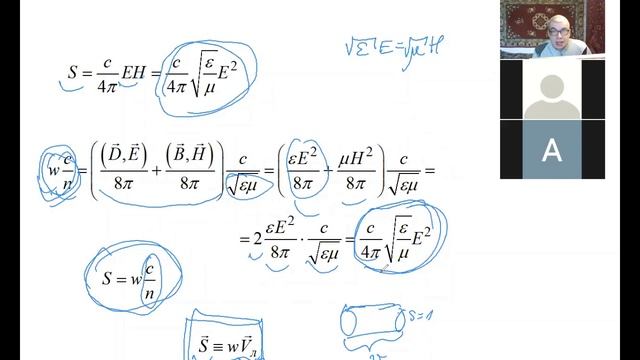 √ε E = √μ H
S = c/4π EH = c/4π √(ε/μ) E²
w c/n = ( (D⃗, E⃗)/8π + (B⃗, H⃗)/8π ) c/√εμ = ( εE²/8π + μH²/8π ) c/√εμ =
= 2 εE²/8π · c/√εμ = c/4π √(ε/μ) E²
S = w c/n
S=1
S⃗ ≡ wV⃗л
A